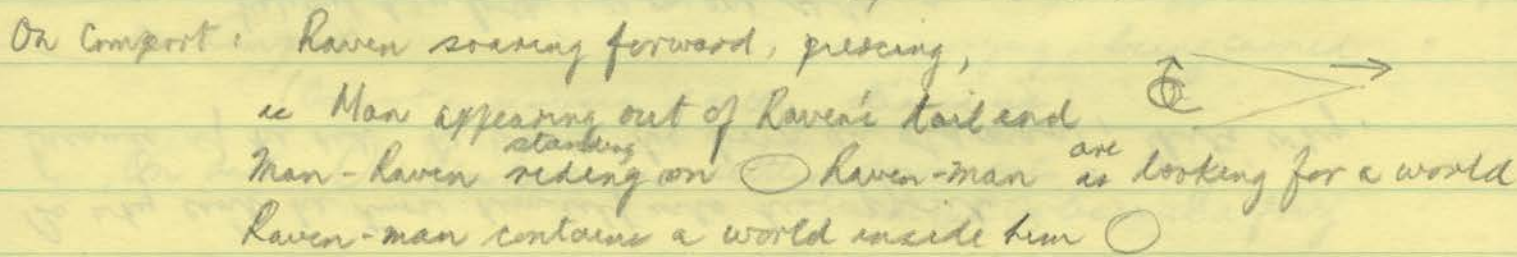 On Comport: Raven soaring forward, piercing,
ie Man appearing out of Raven's tail end
standing are
Man-Raven riding on Raven-man as looking for a world
Raven-man contains a world inside him